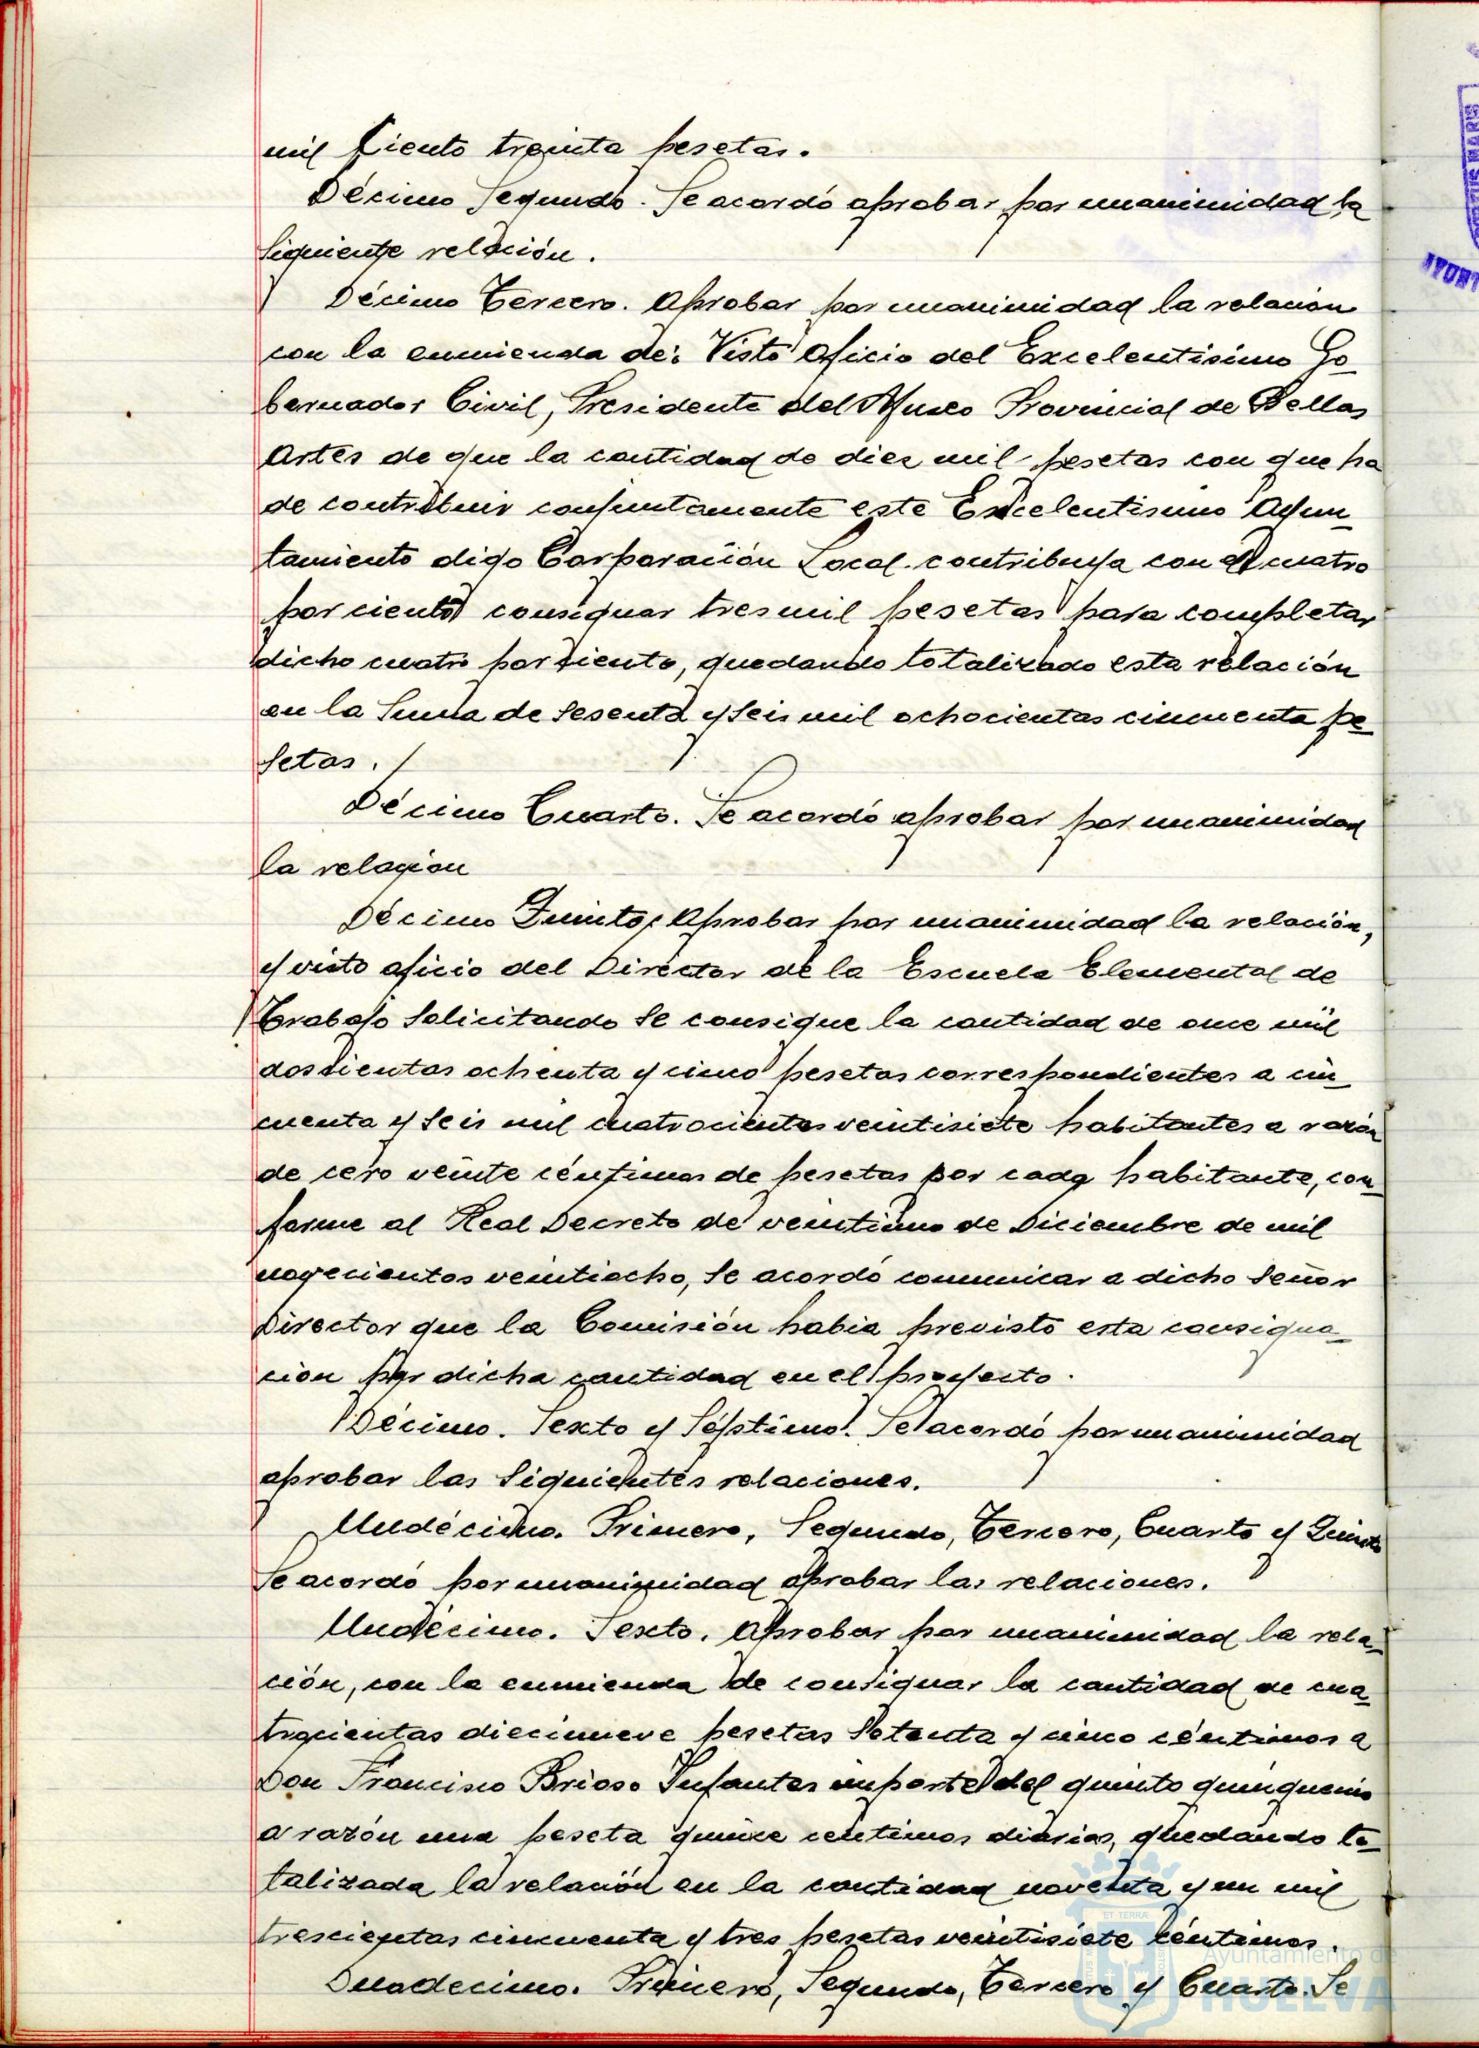 mil Ciento treinta pesetas.
Décimo Segundo. Se acordó aprobar por unanimidad la
Siguiente relación.
Décimo Tercero. Aprobar por unanimidad la relación
con la enmienda de: Visto Oficio del Excelentísimo Go-
bernador Civil, Presidente del Museo Provincial de Bellas
Artes de que la cantidad de diez mil pesetas con que ha
de contribuir conjuntamente este Excelentísimo Ayun-
tamiento digo Corporación Local contribuya con el cuatro
por ciento consignar tres mil pesetas para completar
dicho cuatro por ciento, quedando totalizado esta relación
en la Suma de Sesenta y Seis mil ochocientas cincuenta pe-
setas.
Décimo Cuarto. Se acordó aprobar por unanimidad
la relación
Décimo Quinto. Aprobar por unanimidad la relación,
y visto oficio del Director de la Escuela Elemental de
Trabajo Solicitando Se consigue la cantidad de once mil
doscientas ochenta y cinco pesetas correspondientes a cin-
cuenta y Seis mil cuatrocientos veintisiete habitantes a razón
de cero veinte céntimos de pesetas por cada habitante, con-
forme al Real Decreto de veintiuno de Diciembre de mil
novecientos veintiocho, Se acordó comunicar a dicho Señor
Director que la Comisión habia previsto esta consigna-
ción por dicha cantidad en el proyecto.
Décimo. Sexto y Séptimo. Se acordó por unanimidad
aprobar las Siguientes relaciones.
Undécimo. Primero, Segundo, Tercero, Cuarto y Quinto
Se acordó por unanimidad aprobar las relaciones.
Undécimo. Sexto. Aprobar por unanimidad la rela-
ción, con la enmienda de consignar la cantidad de cua-
trocientas diecinueve pesetas Setenta y cinco céntimos a
Don Francisco Brioso Infantes importe del quinto quinquenio
a razón una peseta quince centimos diarios, quedando to-
talizada la relación en la cantidad noventa y un mil
trescientas cincuenta y tres pesetas veintisiete Céntimos.
Duodecimo. Primero, Segundo, Tercero y Cuarto. Se
ET TERRÆ
Ayuntamiento de
HUELVA